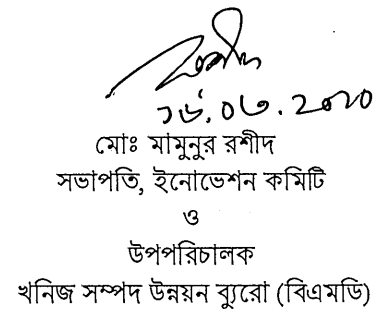 রশীদ
১৬.০৩.২০২০
মোঃ মামুনুর রশীদ
সভাপতি, ইনোভেশন কমিটি
ও
উপপরিচালক
খনিজ সম্পদ উন্নয়ন ব্যুরো (বিএমডি)